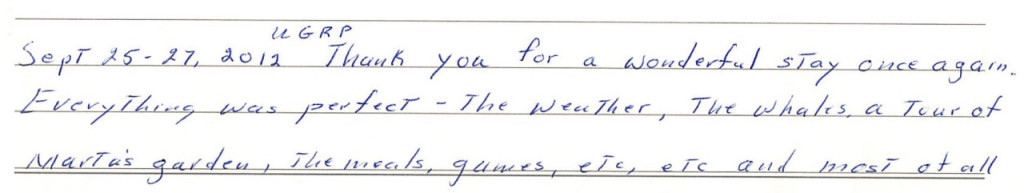 UGRP
Sept 25-27, 2012 Thank you for a wonderful stay once again.
Everything was perfect - The weather, The whales, a Tour of
Marta's garden, The meals, games, etc, etc and most of all